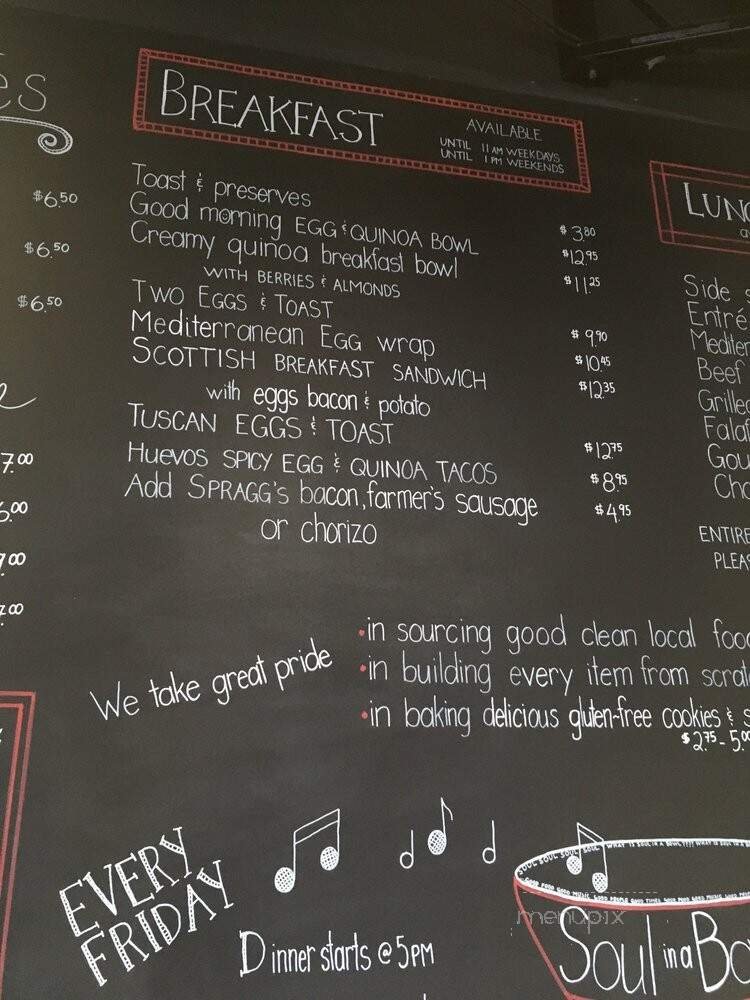 es
$6.50
$6.50
$6.50
7.00
6.00
7.00
7.00
BREAKFAST
AVAILABLE
UNTIL 11 AM WEEKDAYS
UNTIL 1 PM WEEKENDS
Toast & preserves $3.80
Good morning EGG & QUINOA BOWL $12.95
Creamy quinoa breakfast bowl $11.25
WITH BERRIES & ALMONDS
TWO EGGS & TOAST $9.90
Mediterranean EGG wrap $10.45
SCOTTISH BREAKFAST SANDWICH $12.35
with eggs bacon & potato
TUSCAN EGGS & TOAST $12.75
HUEVOS SPICY EGG & QUINOA TACOS $8.95
Add SPRAGG'S bacon, farmer's sausage $4.95
or chorizo
LUN
Side
Entré
Mediter
Beef
Grille
Falaf
Gou
Ch
ENTIRE
PLEA
We take great pride
•in sourcing good clean local foo
•in building every item from scrat
•in baking delicious gluten-free cookies & s
$2.75 - 5.00
EVERY
FRIDAY
Dinner starts @ 5PM
SOUL SOUL SOUL SOUL WHAT IS SOUL IN A BOWL????
GOOD FOOD GOOD MUSIC GOOD PEOPLE GOOD TIMES
Soul in a Bo
menupix